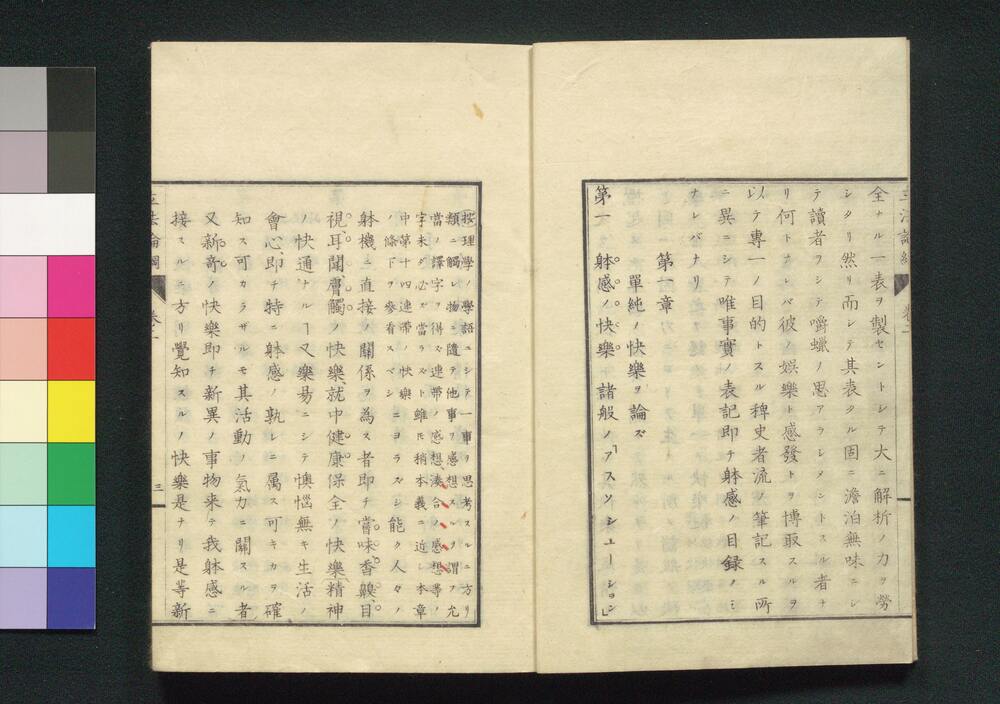 全ナル一表ヲ製セントシテ大ニ解析ノ力ヲ勞
シタリ然リ而シテ其表タル固ニ澹泊無味ニシ
テ讀者ヲシテ嚼蠟ノ思アラシメントスル者ナ
リ何トナレバ彼ノ娯樂ト感發トヲ博取スルヲ
以テ專一ノ目的トスル稗史者流ノ筆記スル所
ニ異ニシテ唯事實ノ表記即チ躰感ノ目録ノミ
ナレバナリ
第一章
單純ノ快樂ヲ論ズ
第一 躰感ノ快樂 諸般ノ「アスソシューション」
按理學ノ學語ニシテ一事ヲ思考スルニ方リ
類ニ觸レ物ニ隨テ他事ヲ感想スルヲ謂フ允
當ノ譯字ヲ得ズ連帶ノ感想湊合ノ感想等ノ
字未ダ必ズ當ラズト雖𪜈稍本義ニ近シ本章
中第十四連帶ノ快樂
ノ條下ヲ參看スベシ
ニヨラズシ能ク人々ノ
躰機ニ直接ノ關係ヲ為ス者即チ嘗味、香齅、目
視、耳聞、膚觸ノ快樂、就中健康保全ノ快樂、精神
ノ快通ナルヿ又樂易ニシテ懊惱無キ生活ノ
會心、即チ特ニ躰感ノ孰レニ属ス可キカヲ確
知ス可カラザルモ其活動ノ氣力ニ關スル者
又新奇ノ快樂即チ新異ノ事物来テ我躰感ニ
接スルニ方リ覺知スルノ快樂是ナリ是等新
三